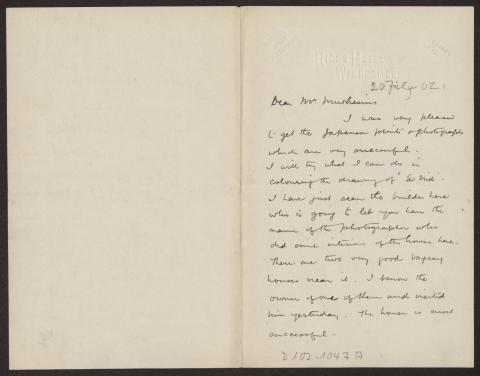 Riggs Hotel
Windermere
20 July 02.
Dear Mr Muthesius
I was very pleased
to get the Japanese prints & photographs
which are very successful.
I will try what I can do in
colouring the drawing of
I have just seen the builder here
who is going to let you have the
name of the photographer who
did some interiors of the house here.
There are two very good Voysey
houses near it. I know the
owner of one of them and visited
him yesterday. The house is most
successful -
D 102-1047 A